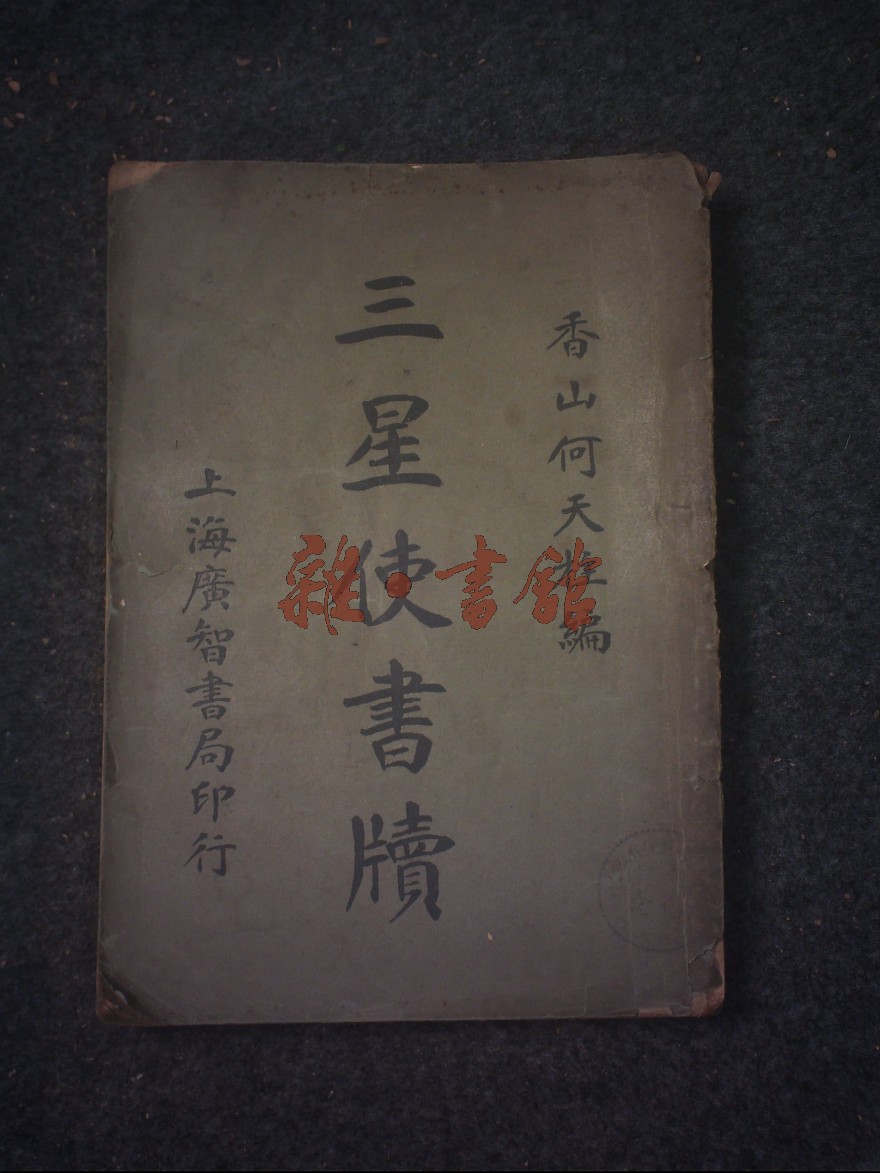 香山何天柱編
三星使書牘
上海廣智書局印行
雜·書館